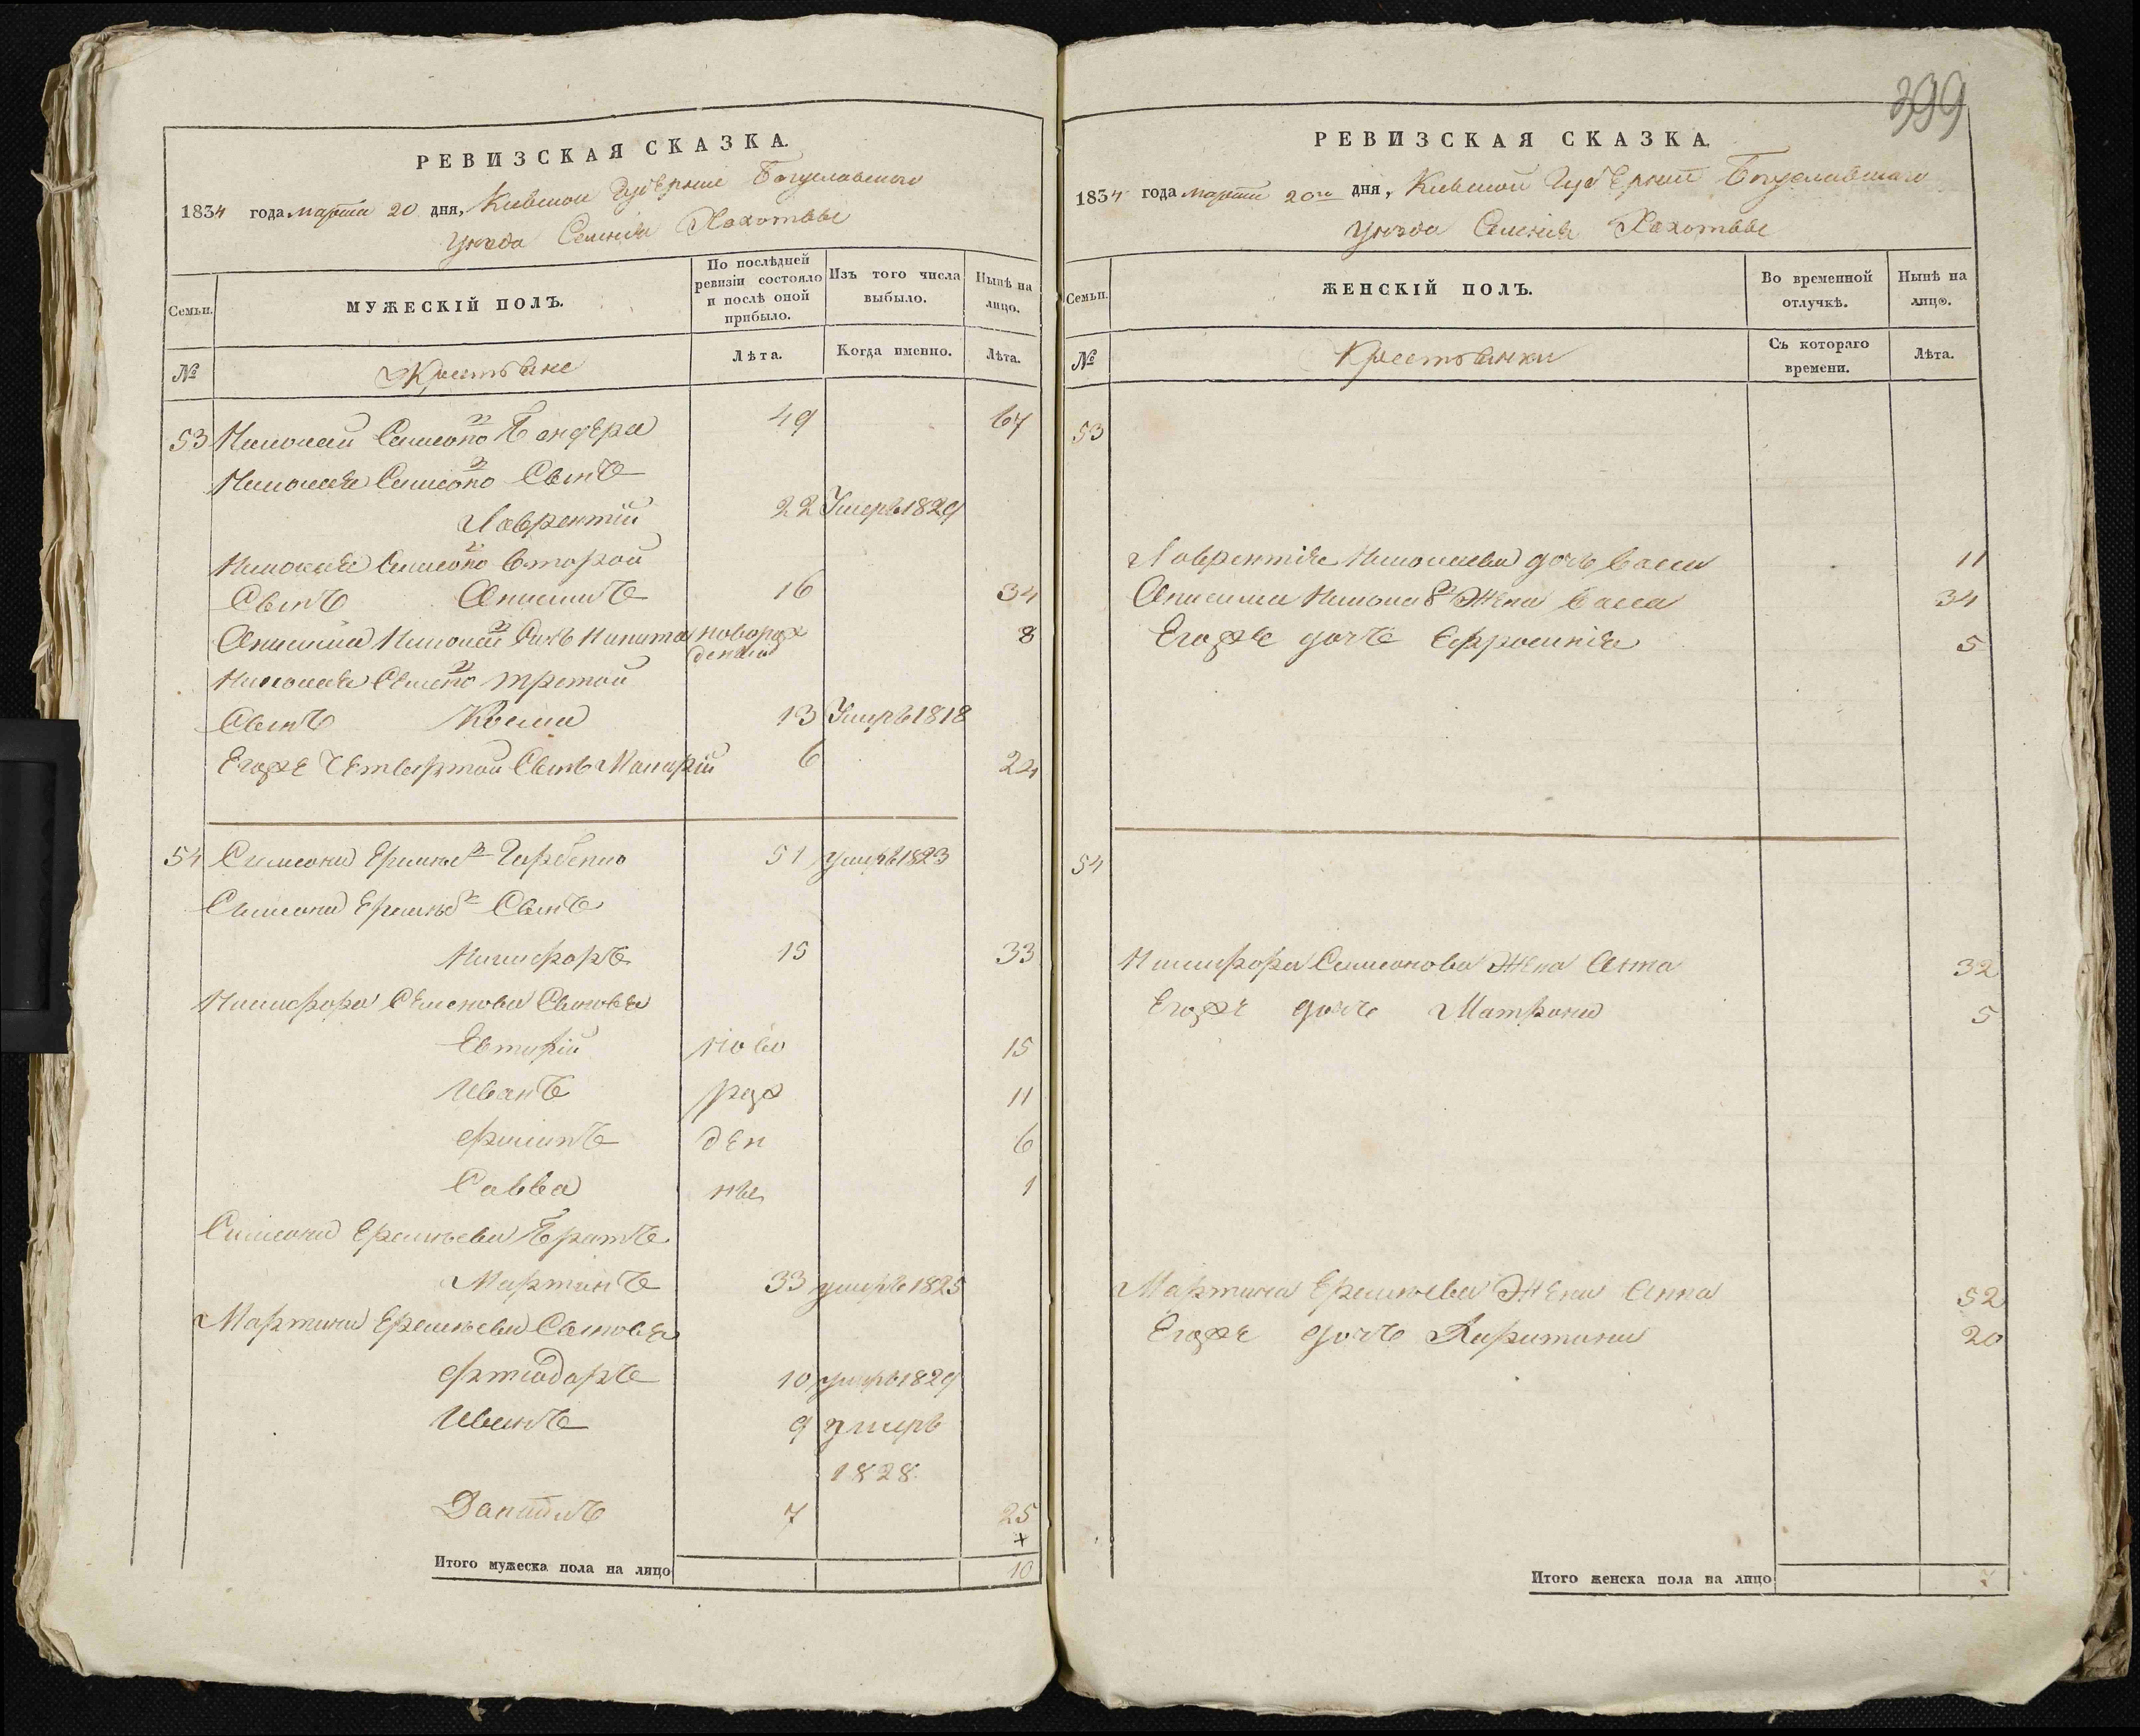 РЕВИЗСКАЯ СКАЗКА.
1834 года марта 20 дня, Кивской Губернiи Богуславского
уезда Селенiя Пахотьвы
Семьи.
МУЖЕСКІЙ ПОЛЪ.
По послѣдней ревизіи состояло и послѣ оной прибыло.
Изъ того числа выбыло.
Нынѣ на лицо.
№
Крестьяне
Лѣта.
Когда именно.
Лѣта.
53 Николай Симоно Бондера 49 67
Николая Симоно Сынъ
Лаврентiй 22 Умеръ 1829
Николая Симоно второй
Сынъ Онисимъ 16 34
Онисима Никола Сынъ Никита новорож 8
денна
Николая Симено третой
Сынъ Косма 13 Умеръ 1818
Егоже Четвертой Сынъ Макарiй 6 24
54 Симеона Еремѣев Горбенко 51 умеръ 1823
Симеона Еремѣев Сынъ
Никифоръ 15 33
Никифора Семенова Сыновья
Евтифiй ново 15
Иванъ рож 11
Филипъ ден 6
Савва ные 1
Симеона Еремѣева Братъ
Мартинъ 33 умеръ 1825
Мартина Еремѣева Сыновья
Фтиодоръ 10 умеръ 1829
Иванъ 9 умеръ
1828
Данiилъ 7 25
+
Итого мужеска пола на лицо 10
399
РЕВИЗСКАЯ СКАЗКА.
1834 года марта 20го дня, Кивской Губернiи Богуславского
уезда Селенiя Пахотьвы
Семьи.
ЖЕНСКІЙ ПОЛЪ.
Во временной отлучкѣ.
Нынѣ на лицо.
№
Крестьянки
Съ котораго времени.
Лѣта.
53
Лаврентiя Николаева дочь Васса 11
Онисима Никола Жена Васса 34
Егоже дочь Ефросинiя 5
54
Никифора Симонова Жена Анна 32
Егоже дочь Матрона 5
Мартина Еремѣева Жена Анна 52
Егоже дочь Харитина 20
Итого женска пола на лицо 7